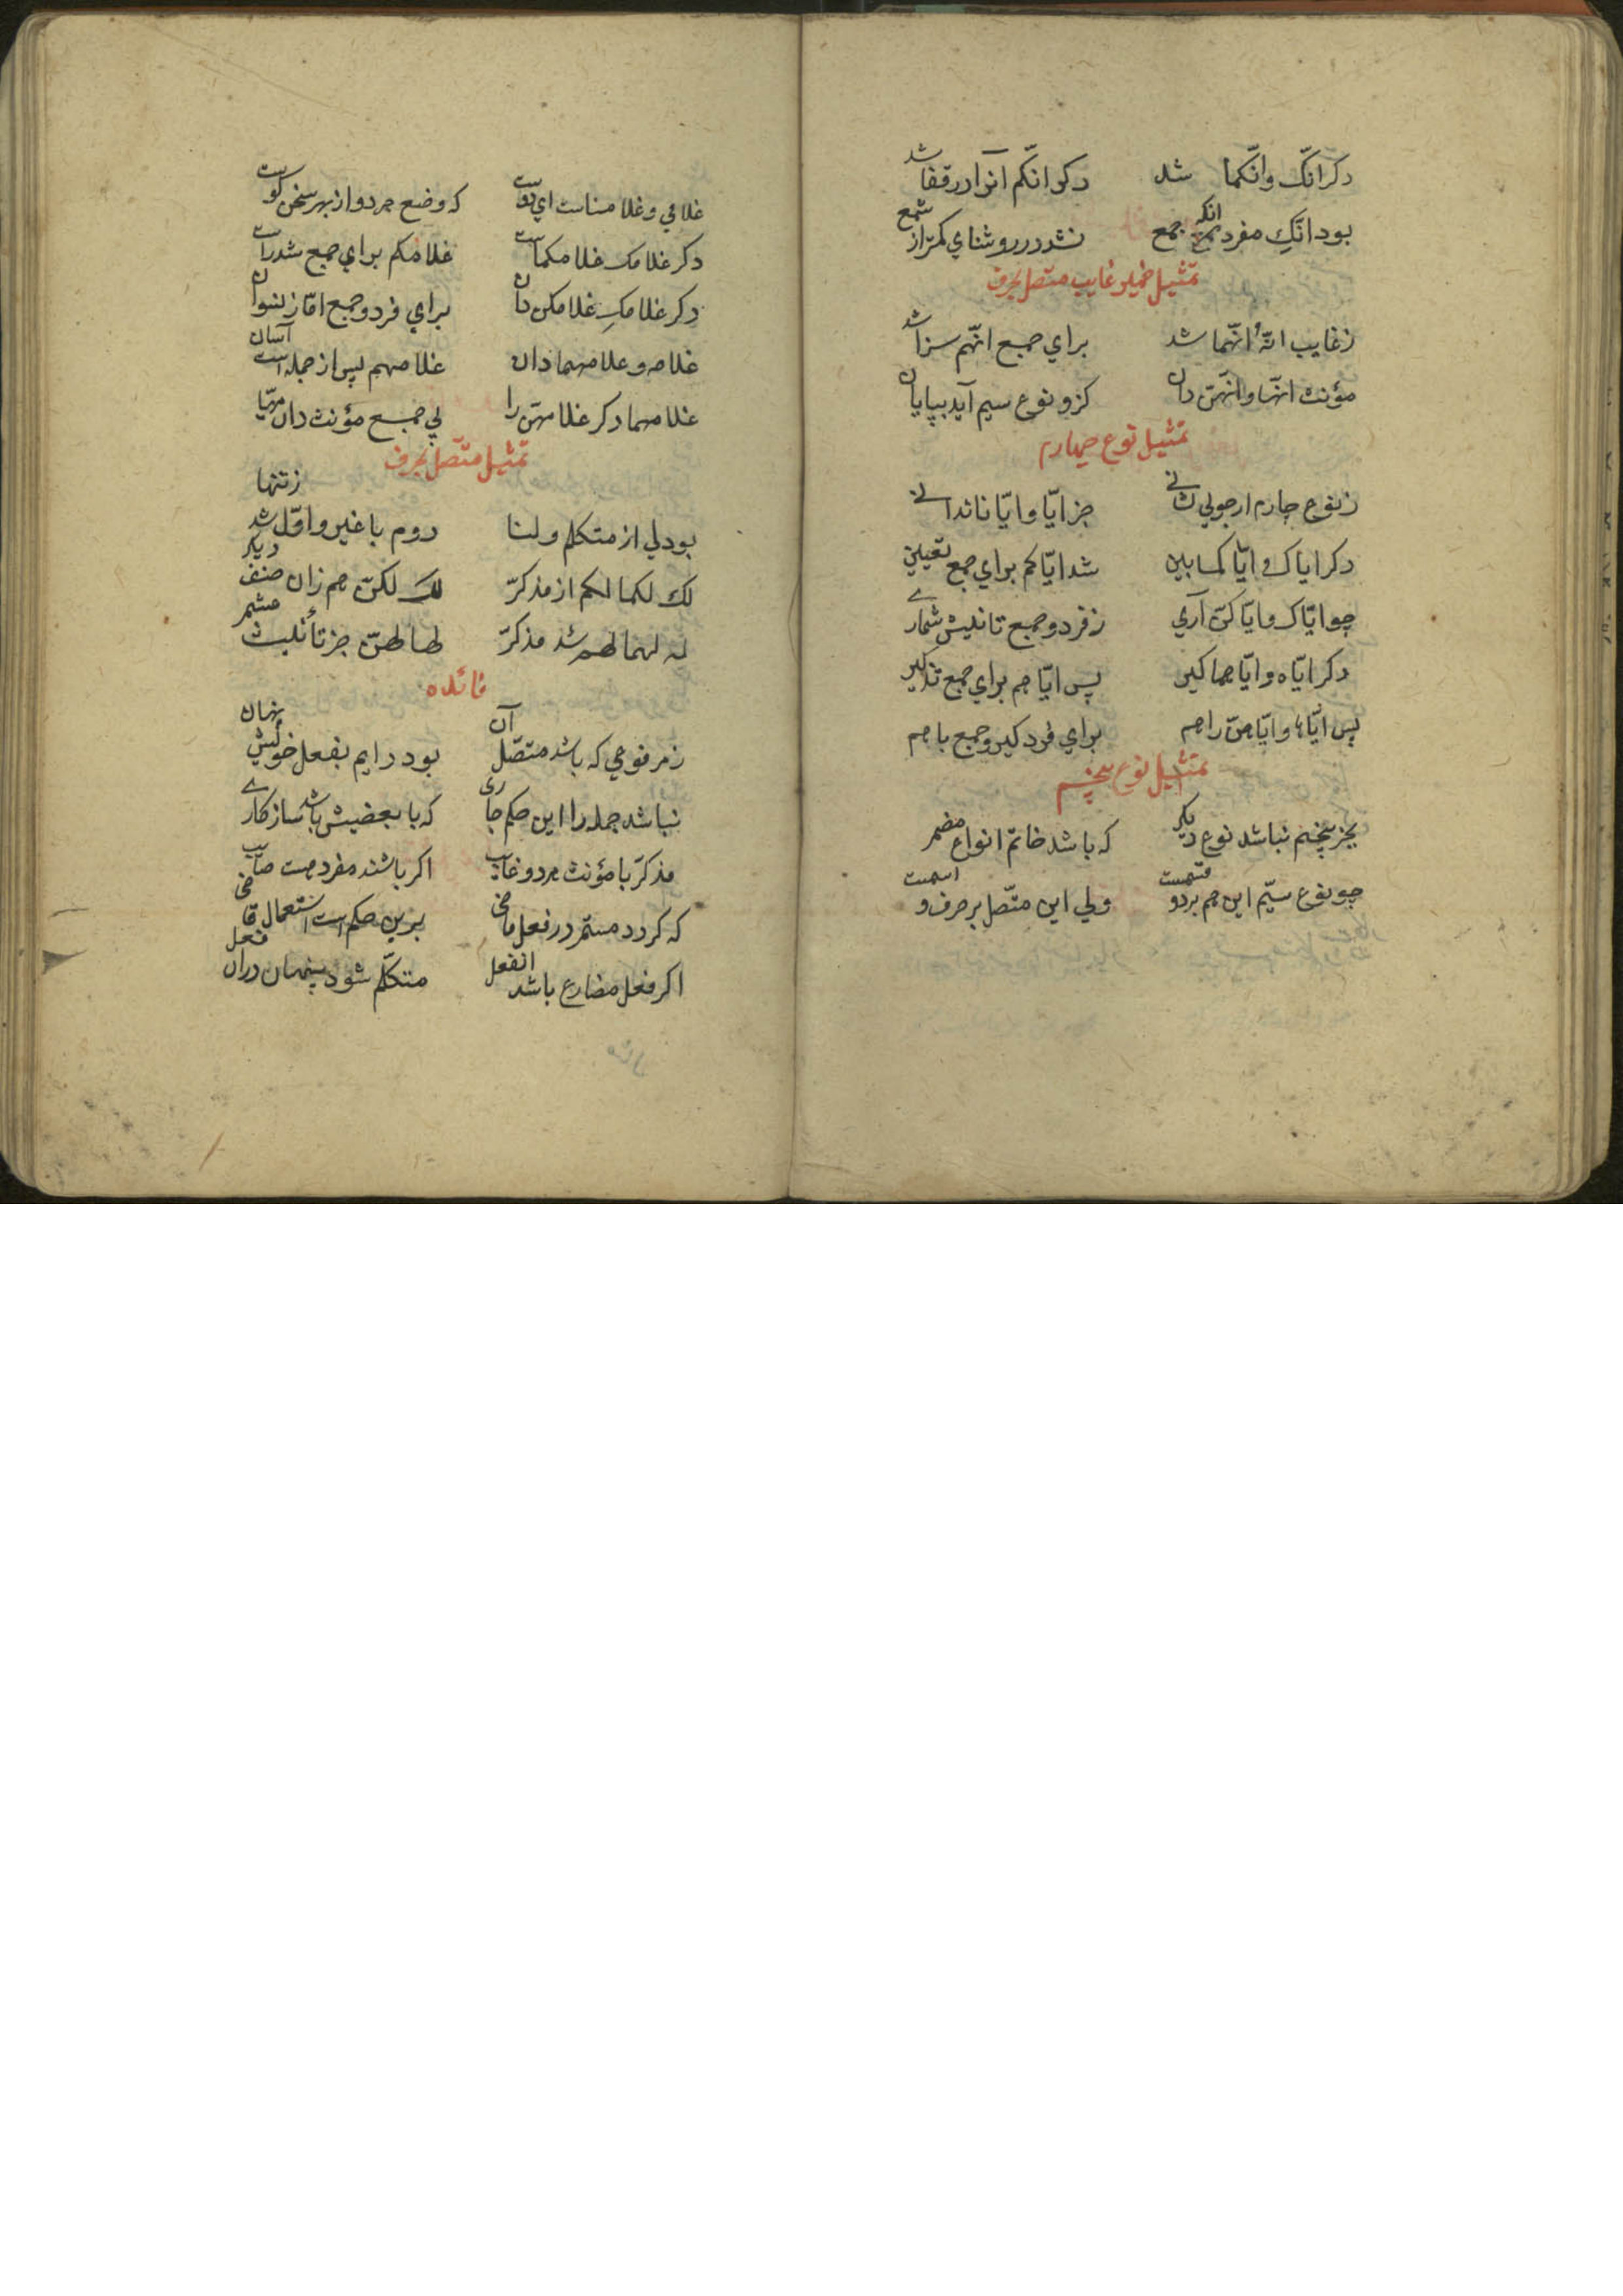 دكر انّك وانّكما شد دكر انّكم آنرا در قفا شد
بود انّكِ مفرد انكه جمع نشد در روشناي كمتر از شمع
تمثيل ضمير غايب متصل بحرف
زغايب انّهُ انّهما شد براي جمع انّهم سزا شد
مؤنث انّها وانّهنّ دان كزو نوع سيم آيد بپايان
تمثيل نوع چهارم
زنوع چارم ار جويي نشاني جز ايّا و ايّانا ندانی
دكر اياك و ايّاكما بين شد ايّاكم براي جمع تعيين
چو ايّاك و ايّاكنّ آري ز فرد و جمع تانيثش شماري
دكر ايّاه و ايّاهما كير پس ايّاهم براي جمع تذكير
پس ايّاها و ايّاهنّ را هم براي فرد كير و جمع با هم
تمثيل نوع پنجم
بجز پنجم نباشد نوع ديكر كه باشد خاتم انواع مضمر
چو نوع سيّم اين هم بر دو قسمست ولي اين متّصل بر حرف و اسمست
غلامي و غلامناست اي دوست كه وضع هر دو از بهر سخن كوست
دكر غلامك غلامكماست غلامكم براي جمع شد راست
دكر غلامكِ غلامكن دان براي فرد و جمع امّا ز نسوان
غلامه و غلامهما دان غلامهم پس از جمله است آسان
غلامها دكر غلامهنّ را پي جمع مؤنث دان مهيّا
تمثيل متّصل بحرف
بود لي از متكلم و لنا دوم با غير و اوّل شد ز تنها
لك لكما لكم از مذكرّ لكِ لكنّ هم زان صنف ديكر
له لهما لهم شد مذكرّ لها لهنّ جز تأنيث مشمر
فائده
ز مرفوعي كه باشد متّصل آن بود دايم بفعل خويش پنهان
نباشد جمله را اين حكم جاری كه با بعضيش باشد سازكاري
مذكرّ با مؤنث هر دو غايب اكر باشند مفرد هست صايب
كه كردد مستتر در فعل ماضي برين حكم است استعمال قاضي
اكر فعل مضارع باشد انفعل متكلّم شود پنهان دران فعل
مثال